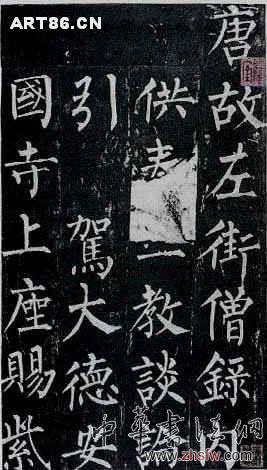 ART86.CN
唐故左街僧錄內
供教談論
引駕大德安
國寺上座賜紫
中華書法網
www.zhsfw.com